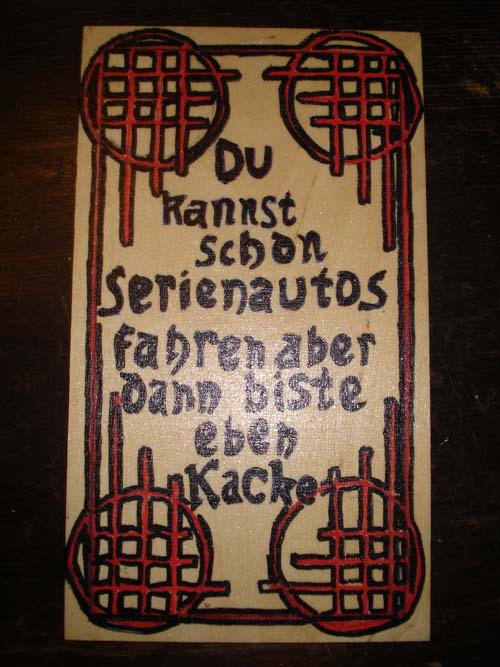 Du
kannst
schon
Serienautos
fahren aber
dann biste
eben
Kacke